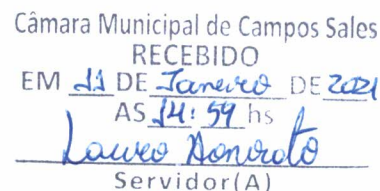 Câmara Municipal de Campos Sales
RECEBIDO
EM 11 DE Janeiro DE 2021
AS 14:59 hs
Lauro Honorato
Servidor(A)